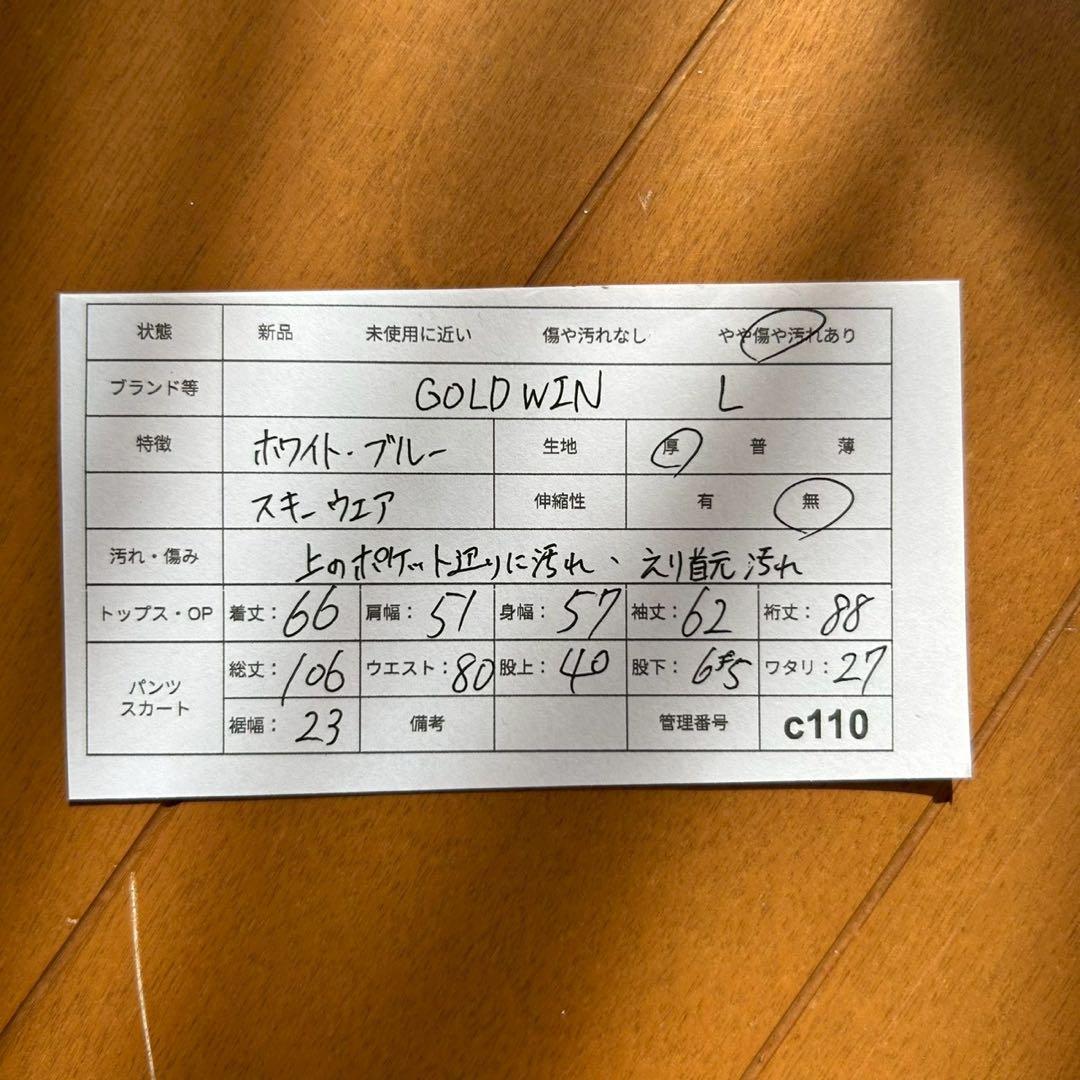 状態 新品 未使用に近い 傷や汚れなし やや傷や汚れあり
ブランド等 GOLDWIN L
特徴 ホワイト・ブルー 生地 厚 普 薄
スキーウェア 伸縮性 有 無
汚れ・傷み 上のポケット辺りに汚れ、えり首元汚れ
トップス・OP 着丈：66 肩幅：51 身幅：57 袖丈：62 裄丈：88
パンツ スカート 総丈：106 ウエスト：80 股上：40 股下：65 ワタリ：27
裾幅：23 備考 管理番号 c110